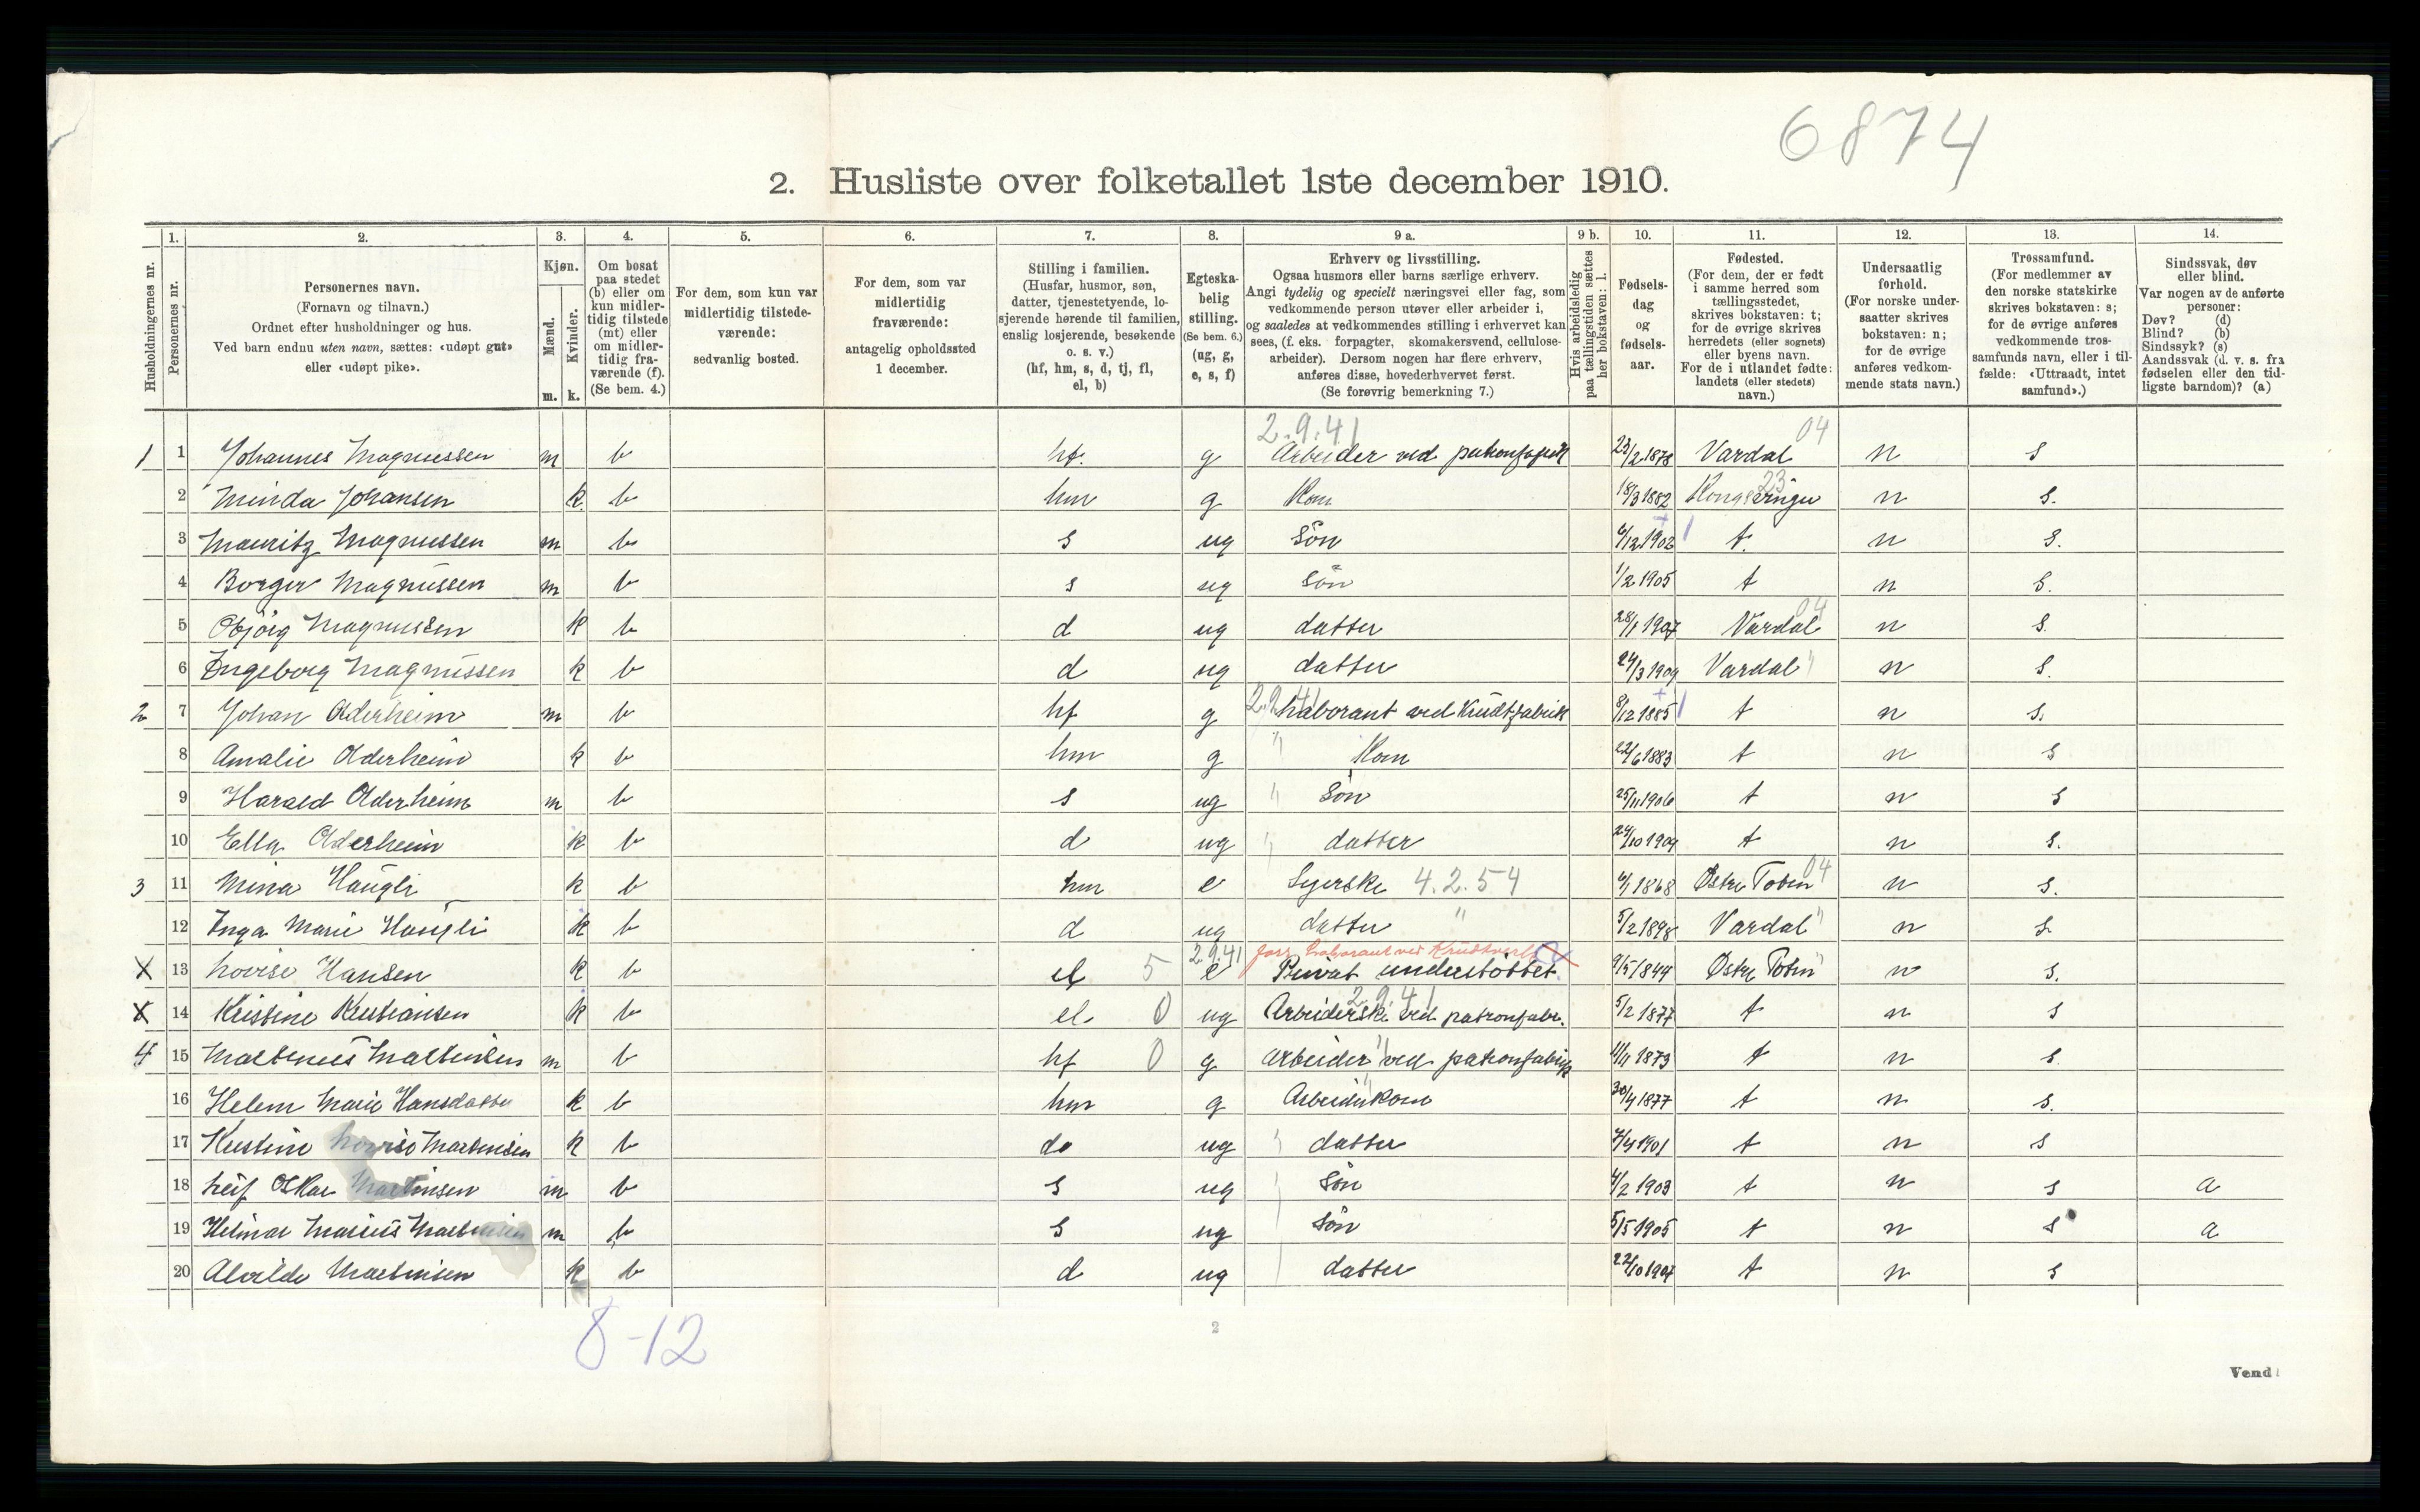 6874
2. Husliste over folketallet 1ste december 1910.
Husholdningernes nr.
1. Personernes nr.
2. Personernes navn.
(Fornavn og tilnavn.)
Ordnet efter husholdninger og hus.
Ved barn endnu uten navn, sættes: «udøpt gut»
eller «udøpt pike».
3. Kjøn.
Mænd. Kvinder.
m. k.
4. Om bosat
paa stedet
(b) eller om
kun midler-
tidig tilstede
(mt) eller
om midler-
tidig fra-
værende (f).
(Se bem. 4.)
5. For dem, som kun var
midlertidig tilstede-
værende:
sedvanlig bosted.
6. For dem, som var
midlertidig
fraværende:
antagelig opholdssted
1 december.
7. Stilling i familien.
(Husfar, husmor, søn,
datter, tjenestetyende, lo-
sjerende hørende til familien,
enslig losjerende, besøkende
o. s. v.)
(hf, hm, s, d, tj, fl,
el, b)
8. Egteska-
belig
stilling.
(Se bem. 6.)
(ug, g,
e, s, f)
9 a. Erhverv og livsstilling.
Ogsaa husmors eller barns særlige erhverv.
Angi tydelig og specielt næringsvei eller fag, som
vedkommende person utøver eller arbeider i,
og saaledes at vedkommendes stilling i erhvervet kan
sees, (f. eks. forpagter, skomakersvend, cellulose-
arbeider). Dersom nogen har flere erhverv,
anføres disse, hovederhvervet først.
(Se forøvrig bemerkning 7.)
9 b. Hvis arbeidsledig
paa tællingstiden sættes
her bokstaven: l.
10. Fødsels-
dag
og
fødsels-
aar.
11. Fødested.
(For dem, der er født
i samme herred som
tællingsstedet,
skrives bokstaven: t;
for de øvrige skrives
herredets (eller sognets)
eller byens navn.
For de i utlandet fødte:
landets (eller stedets)
navn.)
12. Undersaatlig
forhold.
(For norske under-
saatter skrives
bokstaven: n;
for de øvrige
anføres vedkom-
mende stats navn.)
13. Trossamfund.
(For medlemmer av
den norske statskirke
skrives bokstaven: s;
for de øvrige anføres
vedkommende tros-
samfunds navn, eller i til-
fælde: «Uttraadt, intet
samfund».)
14. Sindssvak, døv
eller blind.
Var nogen av de anførte
personer:
Døv? (d)
Blind? (b)
Sindssyk? (s)
Aandssvak (d. v. s. fra
fødselen eller den tid-
ligste barndom)? (a)
2.9.41 04
1 1 Johannes Magnussen m b hf. g Arbeider ved patronfabrik 23/2 1878 Vardal n s
23
2 Minda Johansen k b hm g Kone 18/3 1882 Kongsvinger n s.
3 Mauritz Magnussen m b s ug Sön 6/12 1902 1 t. n s.
4 Borger Magnussen m b s ug Sön 1/2 1905 t n s.
04
5 Magnussen k b d ug datter 28/1 1907 Vardal n s.
6 Ingeborg Magnussen k b d ug datter 24/3 1909 Vardal " n s.
2 7 Johan Olderheim m b hf g 2.9.41 Laborant ved Krudtfabrik 8/12 1885 1 t n s.
8 Amalie Olderheim k b hm g " Kone 22/6 1883 t n s
9 Harald Olderheim m b s ug " Sön 25/11 1906 t n s
10 Ella Olderheim k b d ug " datter 24/10 1909 t n s.
04
3 11 Mina Haugli k b hm e Syerske 4.2.54 6/1 1868 Østre Toten n s.
12 Inga Marie Haugli k b d ug datter " 5/2 1898 Vardal " n s.
2.9.41
X 13 Lovise Hansen k b el 5 e Privat understöttet 9/5 1844 Østre Toten " n s.
2.9.41
X 14 Kristine Kristiansen k b el. 0 ug Arbeiderske ved patronfabr. 5/2 1877 t n s
4 15 Martinius Martinsen m b hf 0 g Arbeider " ved patronfabrik 11/11 1873 t n s.
16 Helene Marie Hansdatter k b hm g Arbeiderkone 30/4 1877 t n s.
17 Kristine Lovise Martinsen k b do ug " datter 7/4 1901 t n s
18 Leif Oskar Martinsen m b s ug " Sön 4/2 1903 t n s a
19 Helmar Marius Martinsen m b s ug Sön 5/5 1905 t n s a
20 Alvilde Martinsen k b d ug datter 22/10 1907 t n s
8-12
2
Vend!